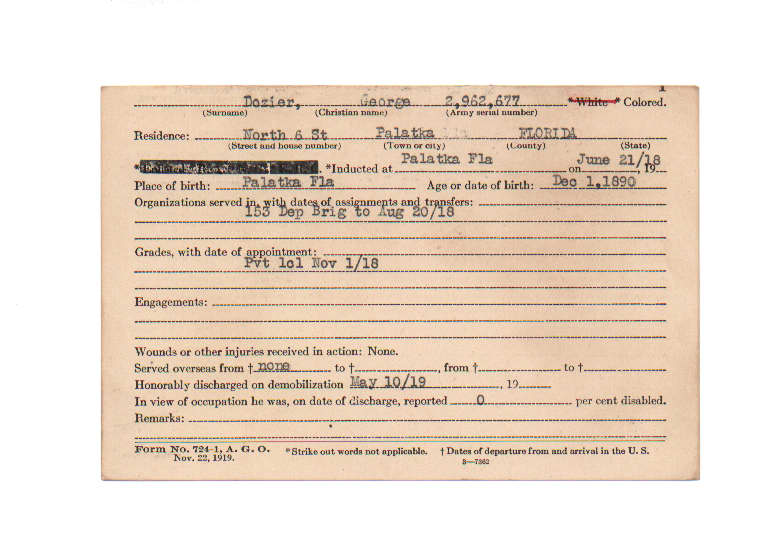 Dozier, George 2,962,677 *White* Colored.
(Surname) (Christian name) (Army serial number)
Residence: North 6 St Palatka FLORIDA
(Street and house number) (Town or city) (County) (State)
* *Inducted at Palatka Fla on June 21/18, 19
Place of birth: Palatka Fla Age or date of birth: Dec 1,1890
Organizations served in, with dates of assignments and transfers:
153 Dep Brig to Aug 20/18
Grades, with date of appointment:
Pvt 1cl Nov 1/18
Engagements:
Wounds or other injuries received in action: None.
Served overseas from † none to †, from † to †
Honorably discharged on demobilization May 10/19, 19
In view of occupation he was, on date of discharge, reported 0 per cent disabled.
Remarks:
Form No. 724-1, A. G. O. *Strike out words not applicable. † Dates of departure from and arrival in the U. S.
Nov. 22, 1919. 3—7362